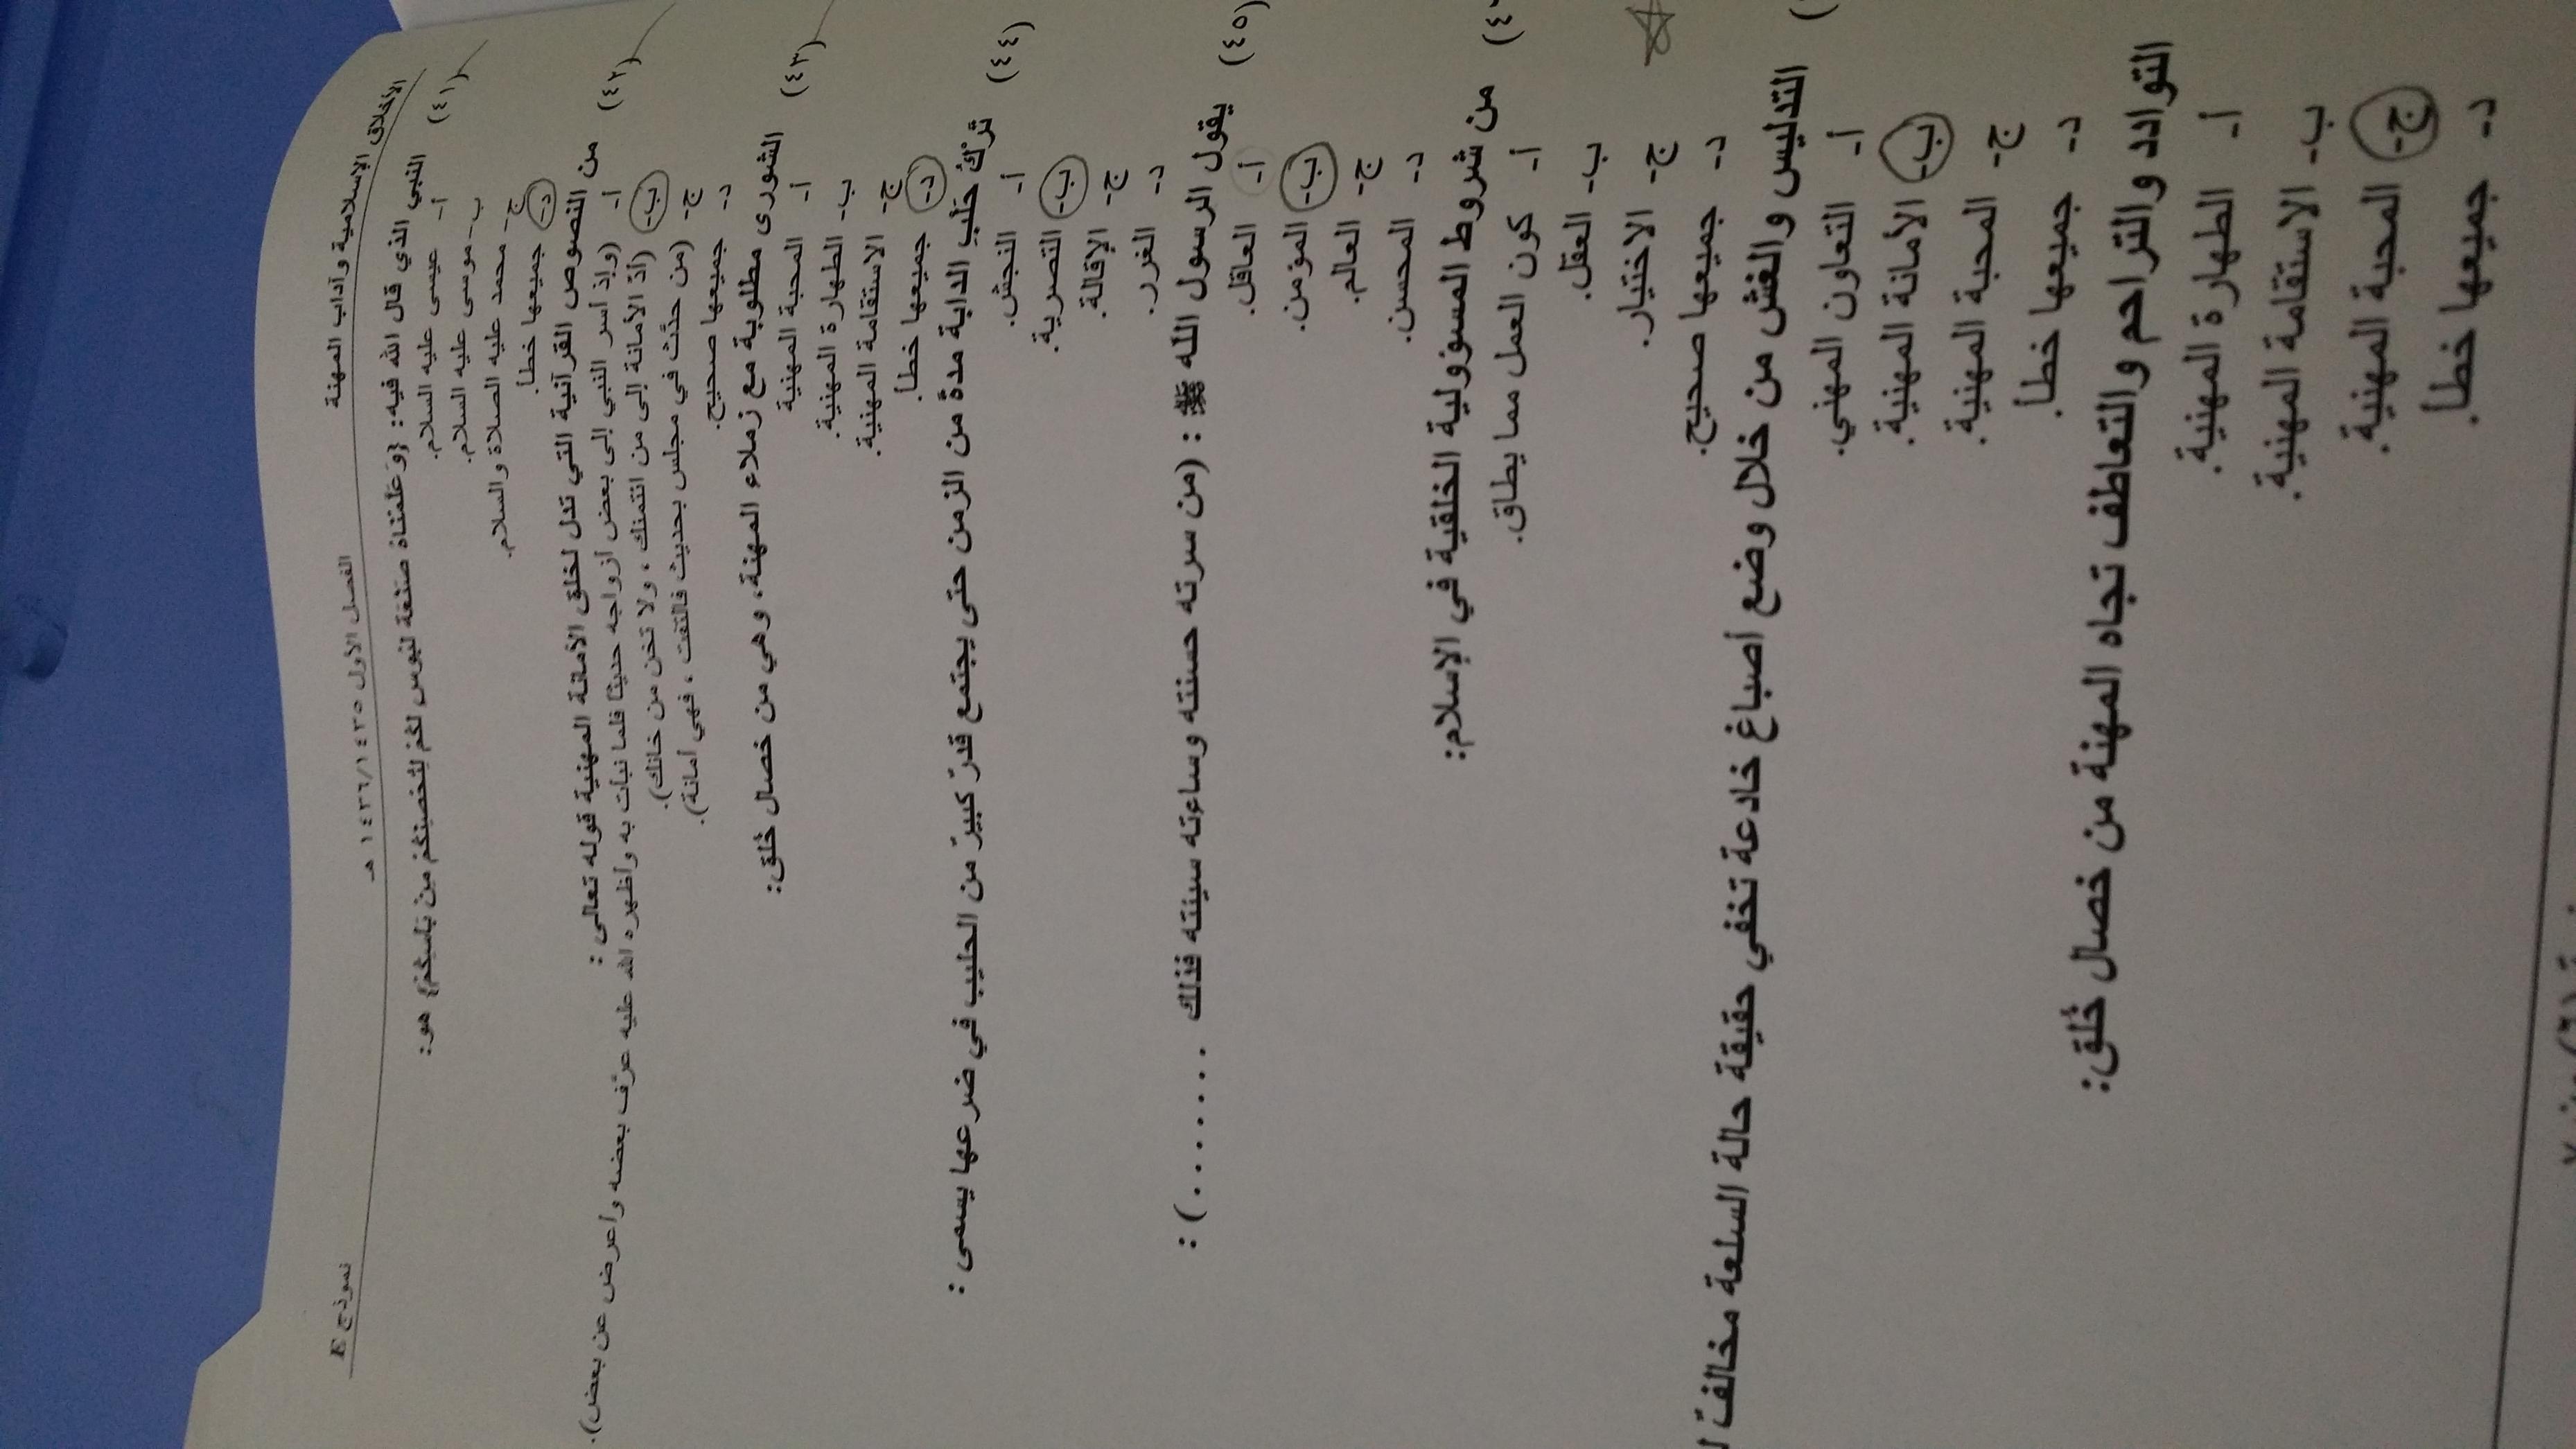 الأخلاق الإسلامية وآداب المهنة الفصل الأول ١٤٣٦/١٤٣٥ هـ نموذج E
(٤١) النبي الذي قال الله فيه: {وَعَلَّمْنَاهُ صَنْعَةَ لَبُوسٍ لَكُمْ لِتُحْصِنَكُمْ مِنْ بَأْسِكُمْ} هو:
أ- عيسى عليه السلام.
ب- موسى عليه السلام.
ج- محمد عليه الصلاة والسلام.
د- جميعها خطأ.
(٤٢) من النصوص القرآنية التي تدل لخلق الأمانة المهنية قوله تعالى :
أ- (وإذ أسر النبي إلى بعض أزواجه حديثا فلما نبأت به وأظهره الله عليه عرّف بعضه وأعرض عن بعض).
ب- (أدّ الأمانة إلى من ائتمنك ، ولا تخن من خانك).
ج- (من حدّث في مجلس بحديث فالتفت ، فهي أمانة).
د- جميعها صحيح.
(٤٣) الشورى مطلوبة مع زملاء المهنة، وهي من خصال خُلق:
أ- المحبة المهنية
ب- الطهارة المهنية.
ج- الاستقامة المهنية.
د- جميعها خطأ.
(٤٤) تَرْكُ حَلْبِ الدابة مدةً من الزمن حتى يجتمع قدرٌ كبيرٌ من الحليب في ضرعها يسمى :
أ- النجش.
ب- التصرية.
ج- الإقالة.
د- الغرر.
(٤٥) يقول الرسول الله ﷺ : (من سرته حسنته وساءته سيئته فذلك ........) :
أ- العاقل.
ب- المؤمن.
ج- العالم.
د- المحسن.
من شروط المسؤولية الخلقية في الإسلام:
أ- كون العمل مما يطاق.
ب- العقل.
ج- الاختيار.
د- جميعها صحيح.
التدليس والغش من خلال وضع أصباغ خادعة تخفي حقيقة حالة السلعة مخالفٌ
أ- التعاون المهني.
ب- الأمانة المهنية.
ج- المحبة المهنية.
د- جميعها خطأ.
التوادد والتراحم والتعاطف تجاه المهنة من خصال خُلق:
أ- الطهارة المهنية.
ب- الاستقامة المهنية.
ج- المحبة المهنية.
د- جميعها خطأ.